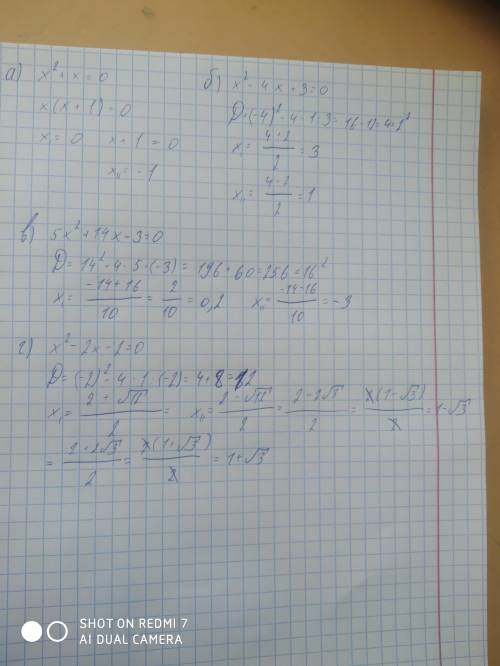 а) x² + x = 0
x(x + 1) = 0
x₁ = 0 x + 1 = 0
x₁₁ = -1
б) x² - 4x + 3 = 0
D = (-4)² - 4 · 1 · 3 = 16 - 12 = 4 = 2²
x₁ = (4 + 2)/2 = 3
x₁₁ = (4 - 2)/2 = 1
в) 5x² + 14x - 3 = 0
D = 14² - 4 · 5 · (-3) = 196 + 60 = 256 = 16²
x₁ = (-14 + 16)/10 = 2/10 = 0,2 x₁₁ = (-14 - 16)/10 = -3
г) x² - 2x - 2 = 0
D = (-2)² - 4 · 1 · (-2) = 4 + 8 = 12
x₁ = (2 + √12)/2 = x₁₁ = (2 - √12)/2 = (2 - 2√3)/2 = 2(1 - √3)/2 = 1 - √3
= (2 + 2√3)/2 = 2(1 + √3)/2 = 1 + √3
SHOT ON REDMI 7
AI DUAL CAMERA